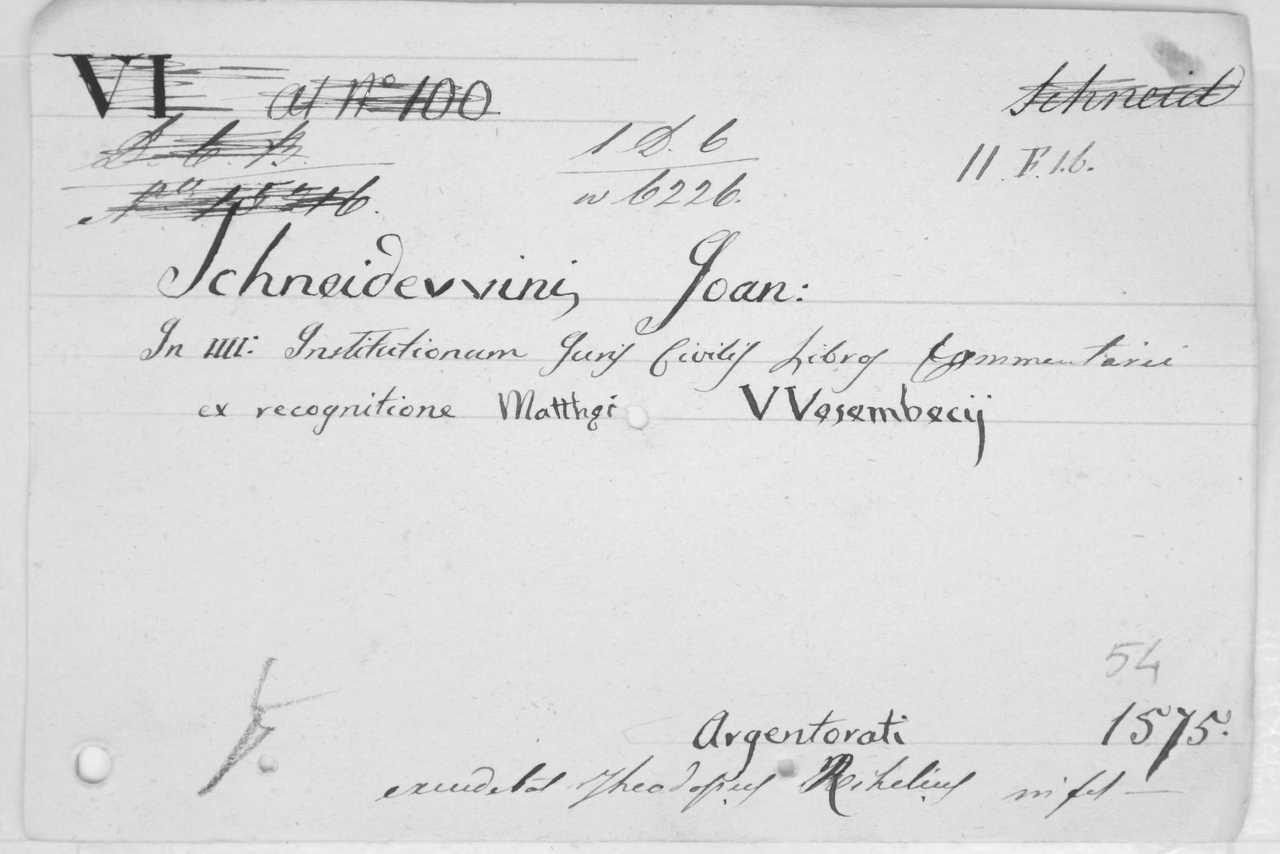 VI at No 100 Schneid
D. 6. B. 1 D. 6 11 F. 1.6.
No 15 16. n 6226.
Schneidevvini, Joan:
In IIII: Institutionum Juris Civilis Libros Commentarii
ex recognitione Matthęi VVesembecij
54
Argentorati 1575.
excudebat Theodosius Rihelius in fol